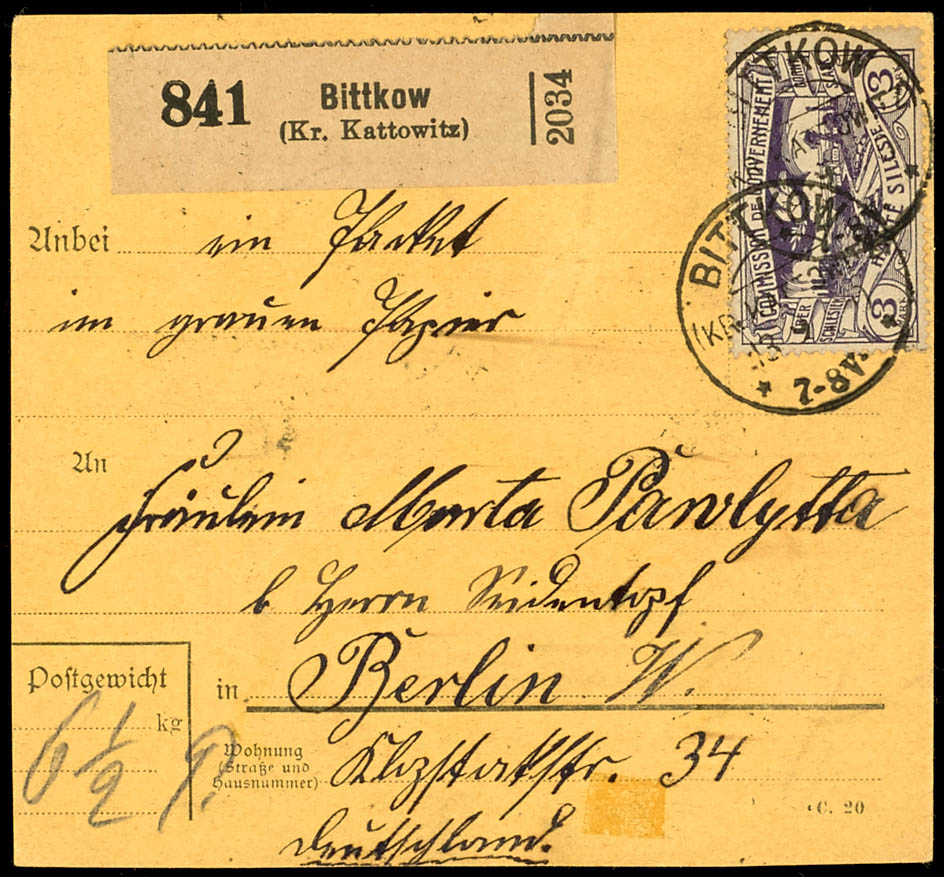 841 Bittkow
(Kr. Kattowitz)
2034
BITTKOW
COMMISSION DE GOUVERNEMENT
HAUTE SILESIE
OBER
SCHLESIEN
3
3
MARK
BITTKOW
(KR.
13
7-8V.
Anbei ein Packet
im grauen Papier
An
Fräulein Marta Pawlytta
b Herrn Seidentopf
Postgewicht
kg
6 1/2
in Berlin W.
Wohnung
(Straße und
Hausnummer)
34
Deutschland.
C. 20